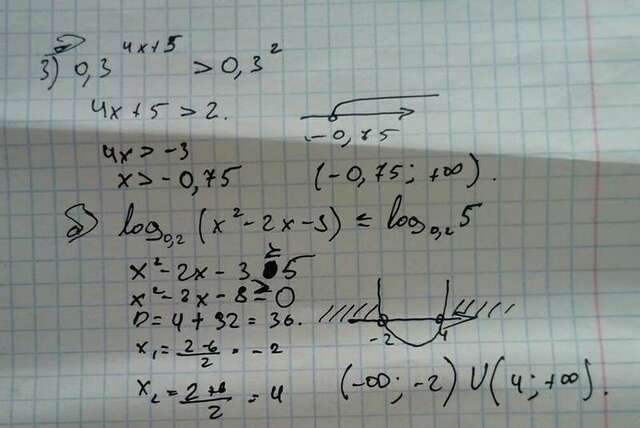 а)
3) 0,3^(4x+5) > 0,3^2
4x+5 > 2.
-0,75
4x > -3
x > -0,75 (-0,75; +∞).
б) log_0,2 (x²-2x-3) ≤ log_0,2 5
x²-2x-3 ≥ 5
x²-2x-8 ≥ 0
D = 4 + 32 = 36.
-2 4
x₁ = (2-6)/2 = -2
x₂ = (2+6)/2 = 4 (-∞; -2) U (4; +∞).